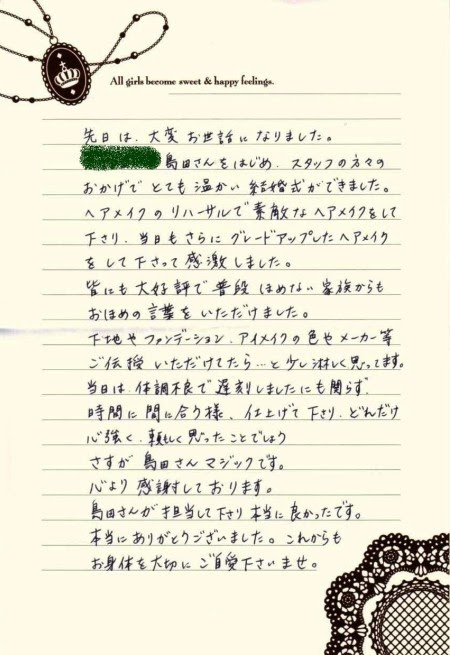 All girls become sweet & happy feelings.
先日は、大変お世話になりました。
島田さんをはじめ、スタッフの方々の
おかげでとても温かい結婚式ができました。
ヘアメイクのリハーサルで素敵なヘアメイクをして
下さり、当日もさらにグレードアップしたヘアメイク
をして下さって感激しました。
皆にも大好評で普段ほめない家族からも
おほめの言葉をいただけました。
下地やファンデーション、アイメイクの色やメーカー等
ご伝授いただけてたら…と少し淋しく思ってます。
当日は、体調不良で遅刻しましたにも関らず、
時間に間に合う様、仕上げて下さり、どんだけ
心強く、頼もしく思ったことでしょう
さすが島田さんマジックです。
心より感謝しております。
島田さんが担当して下さり本当に良かったです。
本当にありがとうございました。これからも
お身体を大切にご自愛下さいませ。